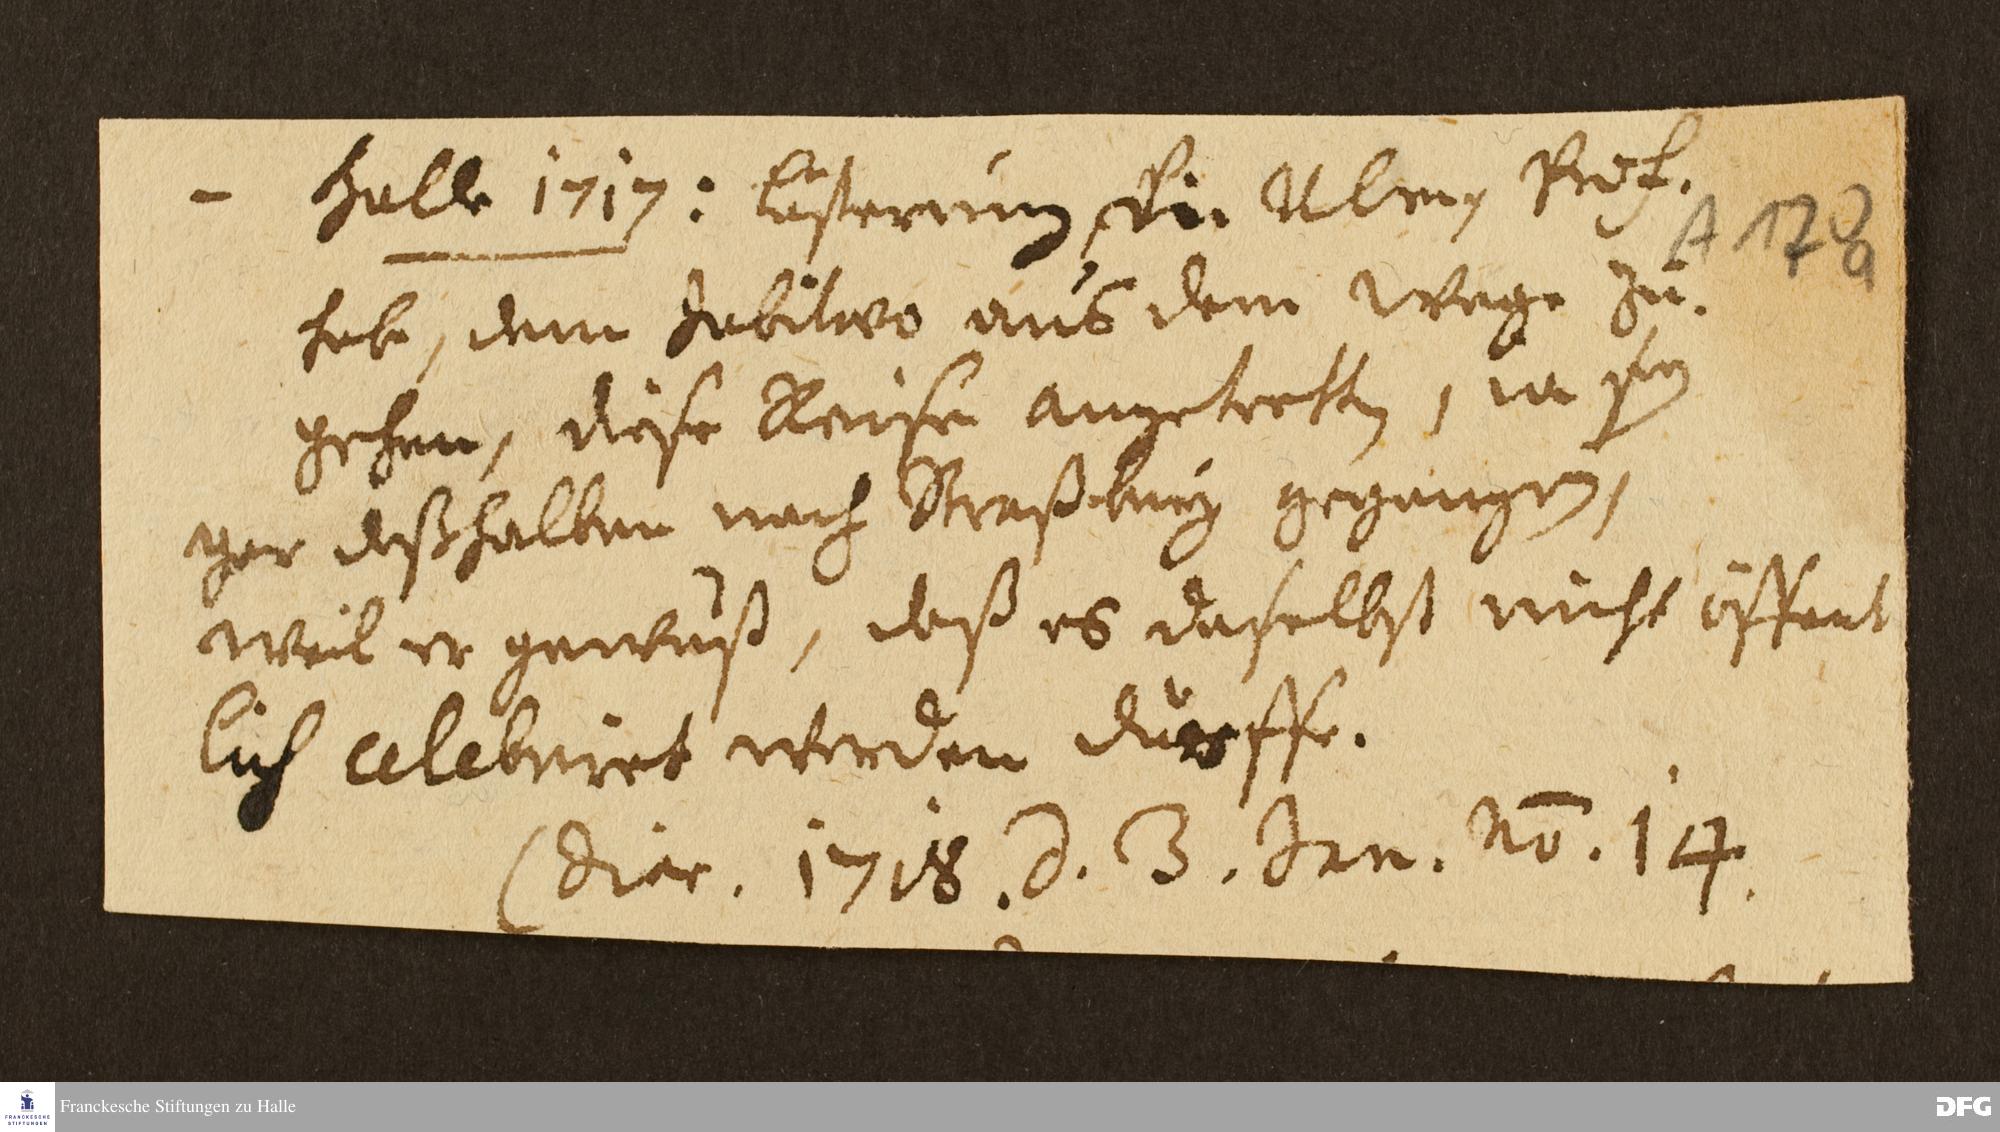 - Halle 1717: Lästerung, H. in Ulm, Prof.
A 178
habe, dem Jubilaeo aus dem Wege zu
gehen, diese Reise angetretten, ia sey
gar deßhalben nach Straßburg gegangen,
weil er gewust, daß es daselbst nicht öffent
lich celebriret werden dürffe.
(Diar. 1718. d. 3. Jan. No. 14.
Franckesche Stiftungen zu Halle
FRANCKESCHE
STIFTUNGEN
DFG